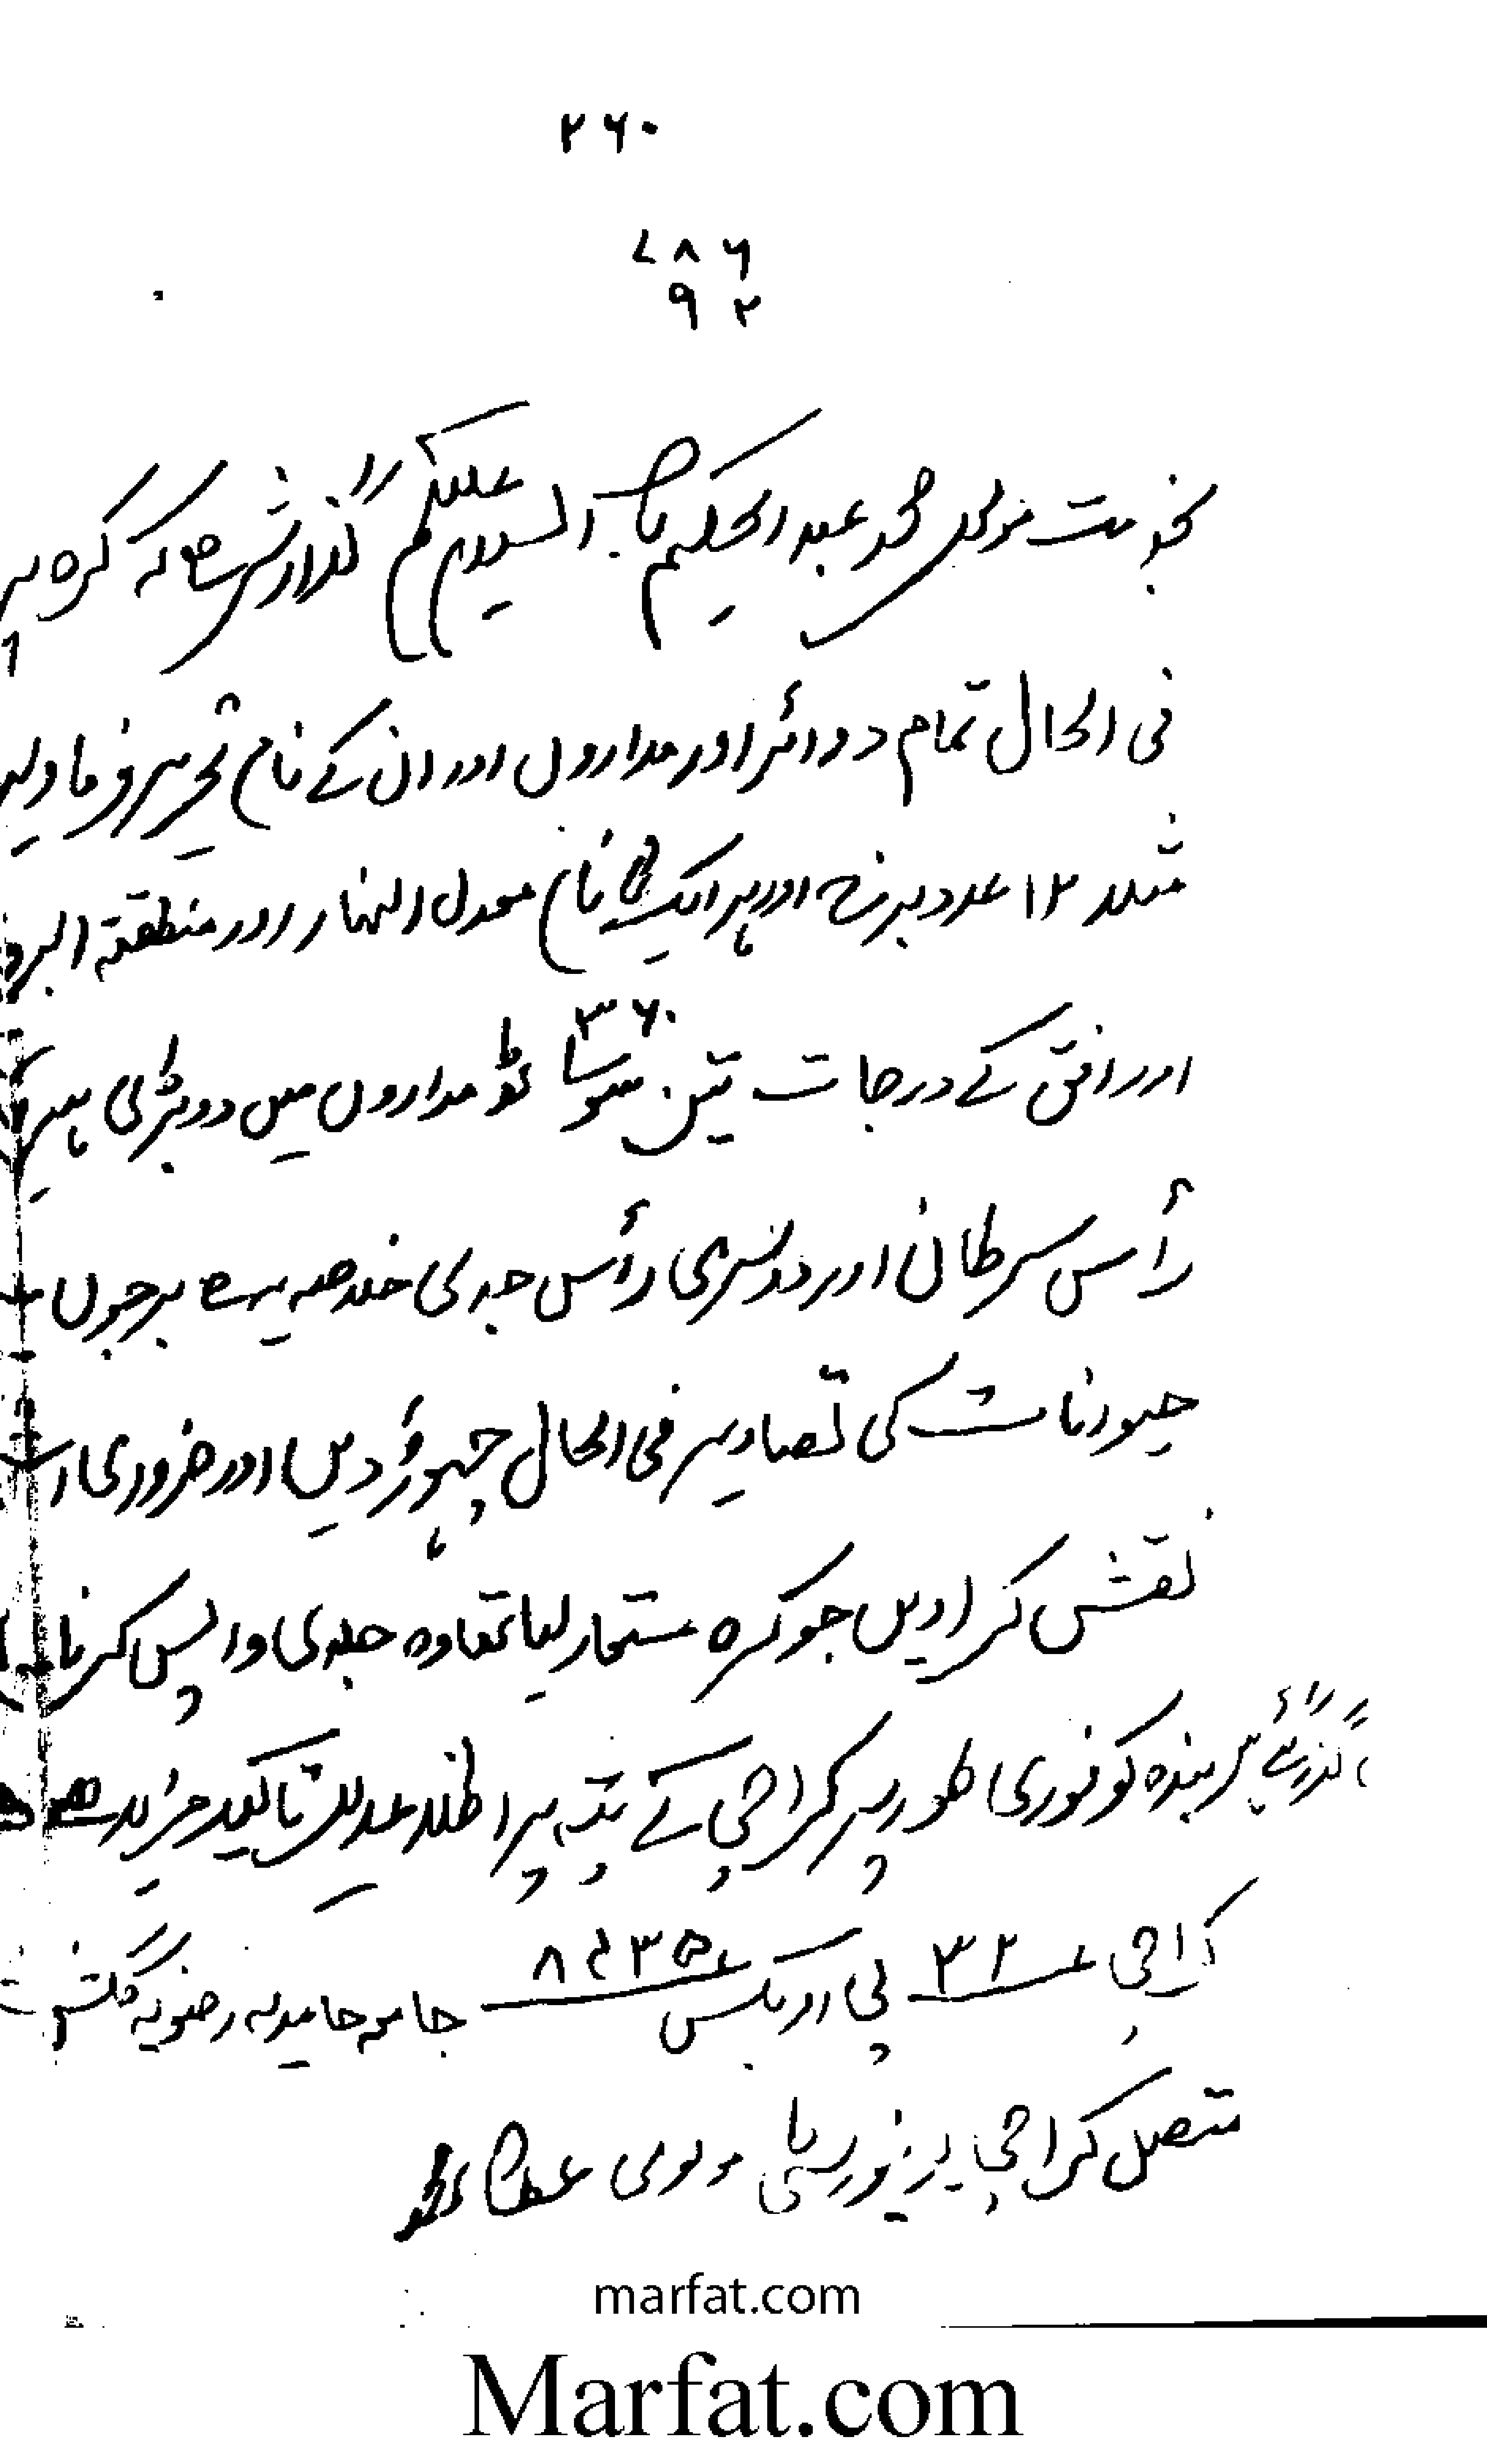 ۲۶۰
۷۸۶
۹۲
بخدمت مولوی محمد عبدالحکیم صاحب السلام علیکم گذارش ہے کہ کرہ پر
فی الحال تمام دوائر اور مداروں اور ان کے نام تحریر فرما
مثلاً ۱۲ عدد برج اور ہر ایک کا نام معدل النہار اور منطقۃ البروج
اور افق کے درجات تین سو ساٹھ ۳۶۰ مداروں میں دو بڑی ہیں
رأس سرطان اور دوسری رأس جدی خلاصہ یہ ہے برجوں
حیوانات کی تصاویر فی الحال چھوڑ دیں اور ضروری
نقش کرا دیں جو کرہ مستعار لیا تھا وہ جلدی واپس کرنا
بندہ کو فوری طور پر کراچی کے پتہ پر اطلاع دیں تاکید مزید ہے
کراچی ۳۲ پی او بکس جامعہ حامدیہ رضویہ گلشن
متصل کراچی یونیورسٹی مولوی عطا محمد
marfat.com
Marfat.com